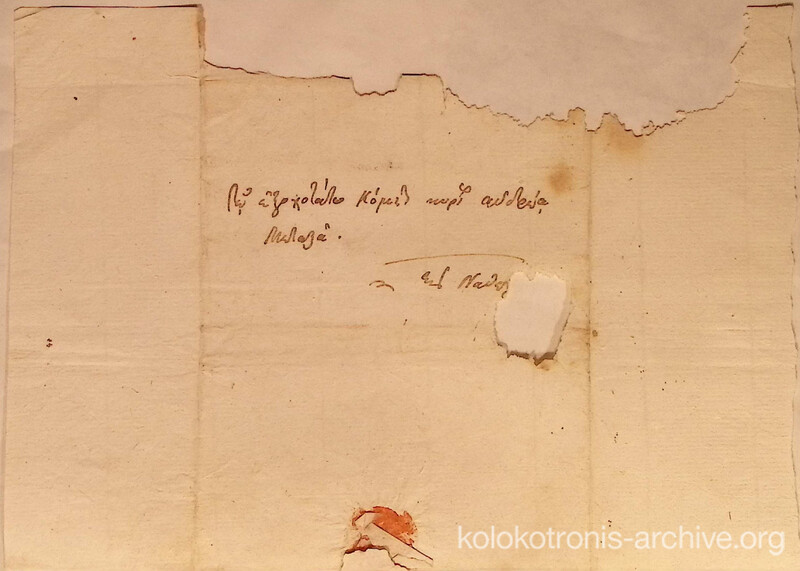 Τῷ ἐξοχοτάτῳ Κόμιτι κυρίῳ ἀνδρέᾳ
Μεταξᾷ.
εἰς Ναύπλ
kolokotronis-archive.org